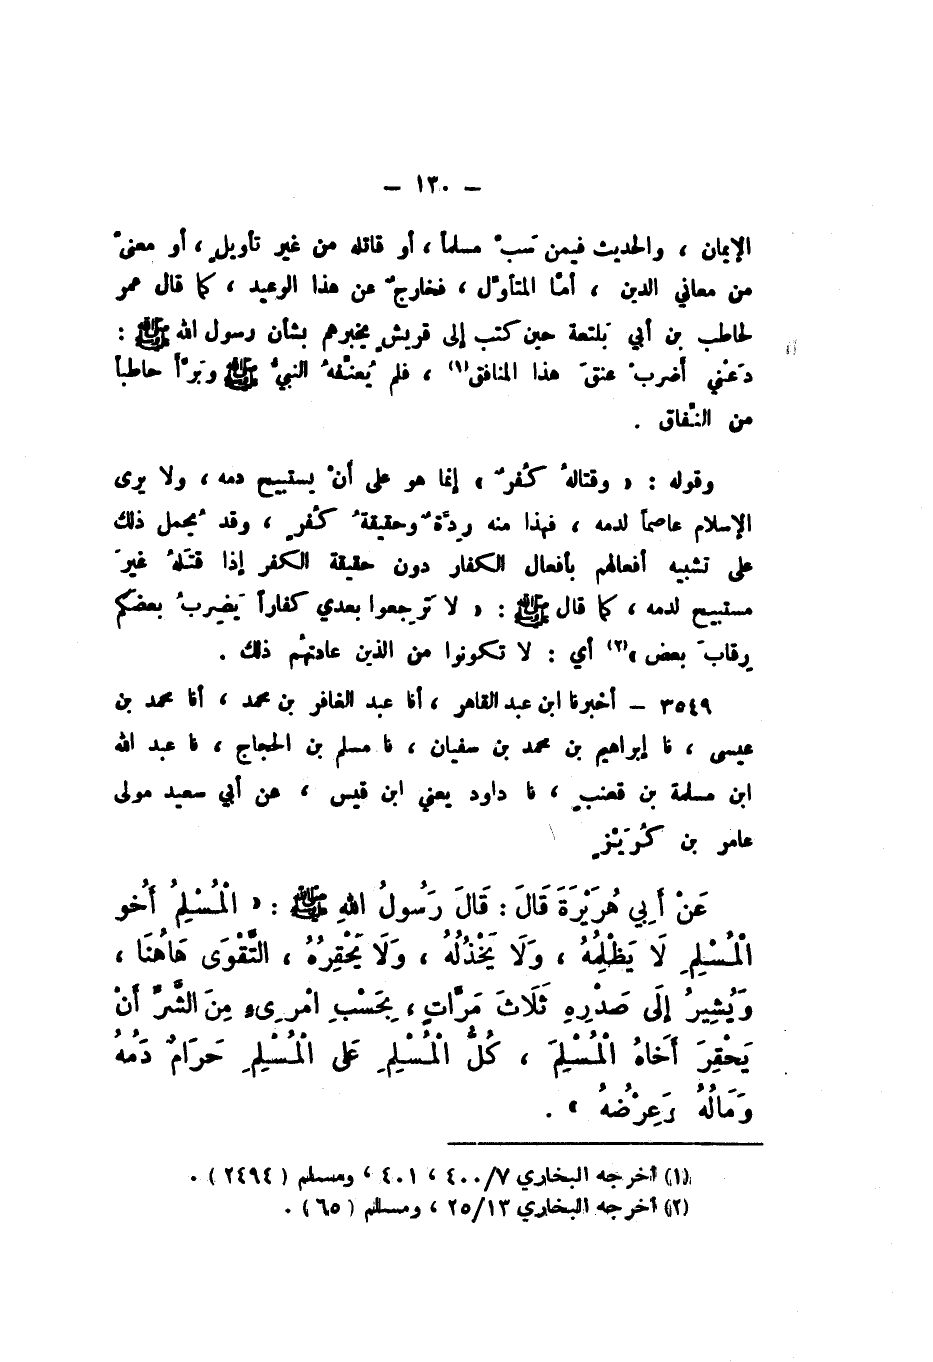 — ١٣٠ —
الإيمان ، والحديث فيمن سَبَّ مسلماً ، أو قاتله من غير تأويلٍ ، أو معنىً
من معاني الدين ، أمّا المتأوِّل ، فخارجٌ عن هذا الوعيد ، كما قال عمر
لحاطب بن أبي بَلتعة حين كتب إلى قريشٍ يخبرهم بشأن رسول الله ﷺ :
دَعْني أضربْ عنقَ هذا المنافق(١) ، فلم يُعنِّفهُ النبيُّ ﷺ وبَرَّأ حاطباً
من النِّفاق .
وقوله : « وقتالهُ كُفرٌ » إنما هو على أنْ يستبيح دمه ، ولا يرى
الإسلام عاصماً لدمه ، فهذا منه ردَّةٌ وحقيقةُ كُفرٍ ، وقد يُحمل ذلك
على تشبيه أفعالهم بأفعال الكفار دون حقيقة الكفر إذا قتَلهُ غيرَ
مستبيح لدمه ، كما قال ﷺ : « لا تَرجعوا بعدي كفاراً يَضربُ بعضكم
رقابَ بعض »(٢) أي : لا تكونوا من الذين عادتهُم ذلك .
٣٥٤٩ – أخبرنا ابن عبد القاهر ، أنا عبد الغافر بن محمد ، أنا محمد بن
عيسى ، نا إبراهيم بن محمد بن سفيان ، نا مسلم بن الحجاج ، نا عبد الله
ابن مسلمة بن قعنبٍ ، نا داود يعني ابن قيس ، عن أبي سعيد مولى
عامر بن كُرَيْزٍ
عَنْ أَبِي هُرَيْرَةَ قَالَ : قَالَ رَسُولُ اللهِ ﷺ : « الْمُسْلِمُ أَخُو
الْمُسْلِمِ لَا يَظْلِمُهُ ، وَلَا يَخْذُلُهُ ، وَلَا يَحْقِرُهُ ، التَّقْوَى هَاهُنَا ،
وَيُشِيرُ إِلَى صَدْرِهِ ثَلَاثَ مَرَّاتٍ ، بِحَسْبِ امْرِىءٍ مِنَ الشَّرِّ أَنْ
يَحْقِرَ أَخَاهُ الْمُسْلِمَ ، كُلُّ الْمُسْلِمِ عَلَى الْمُسْلِمِ حَرَامٌ دَمُهُ
وَمَالُهُ وَعِرْضُهُ » .
(١) أخرجه البخاري ٤٠٠/٧ ، ٤٠١ ، ومسلم ( ٢٤٩٤ ) .
(٢) أخرجه البخاري ٢٥/١٣ ، ومسلم ( ٦٥ ) .